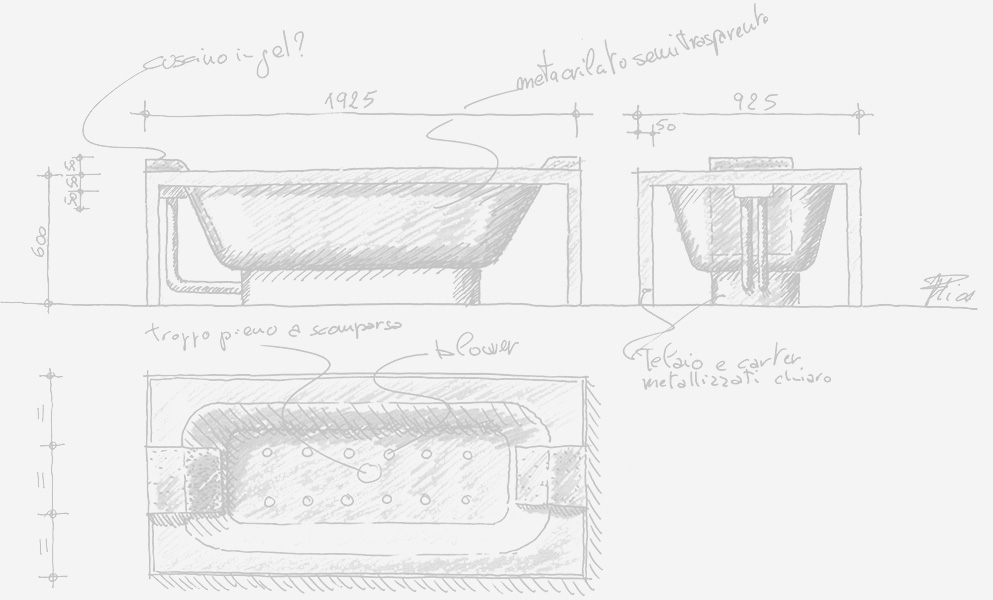 cuscino in gel?
metacrilato semitrasparente
1925
925
50
50
50
50
600
troppo pieno a scomparsa
blower
Telaio e carter
metallizzati chiaro